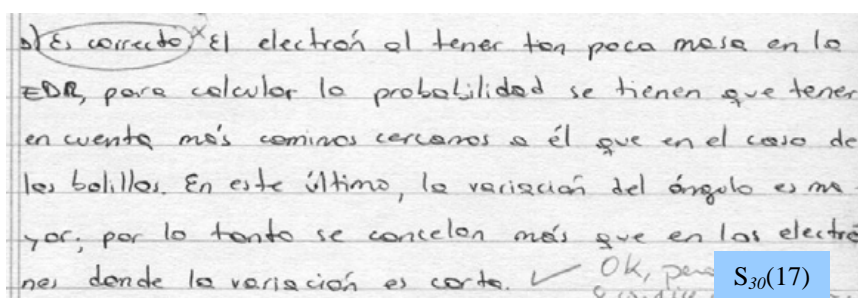 b) Es correcto x El electrón al tener tan poca masa en la
EDR, para calcular la probabilidad se tienen que tener
en cuenta más caminos cercanos a él que en el caso de
las bolillas. En este último, la variación del ángulo es ma-
yor; por lo tanto se cancelan más que en los electro
nes donde la variación es corta. ✓ OK, pero
S30(17)